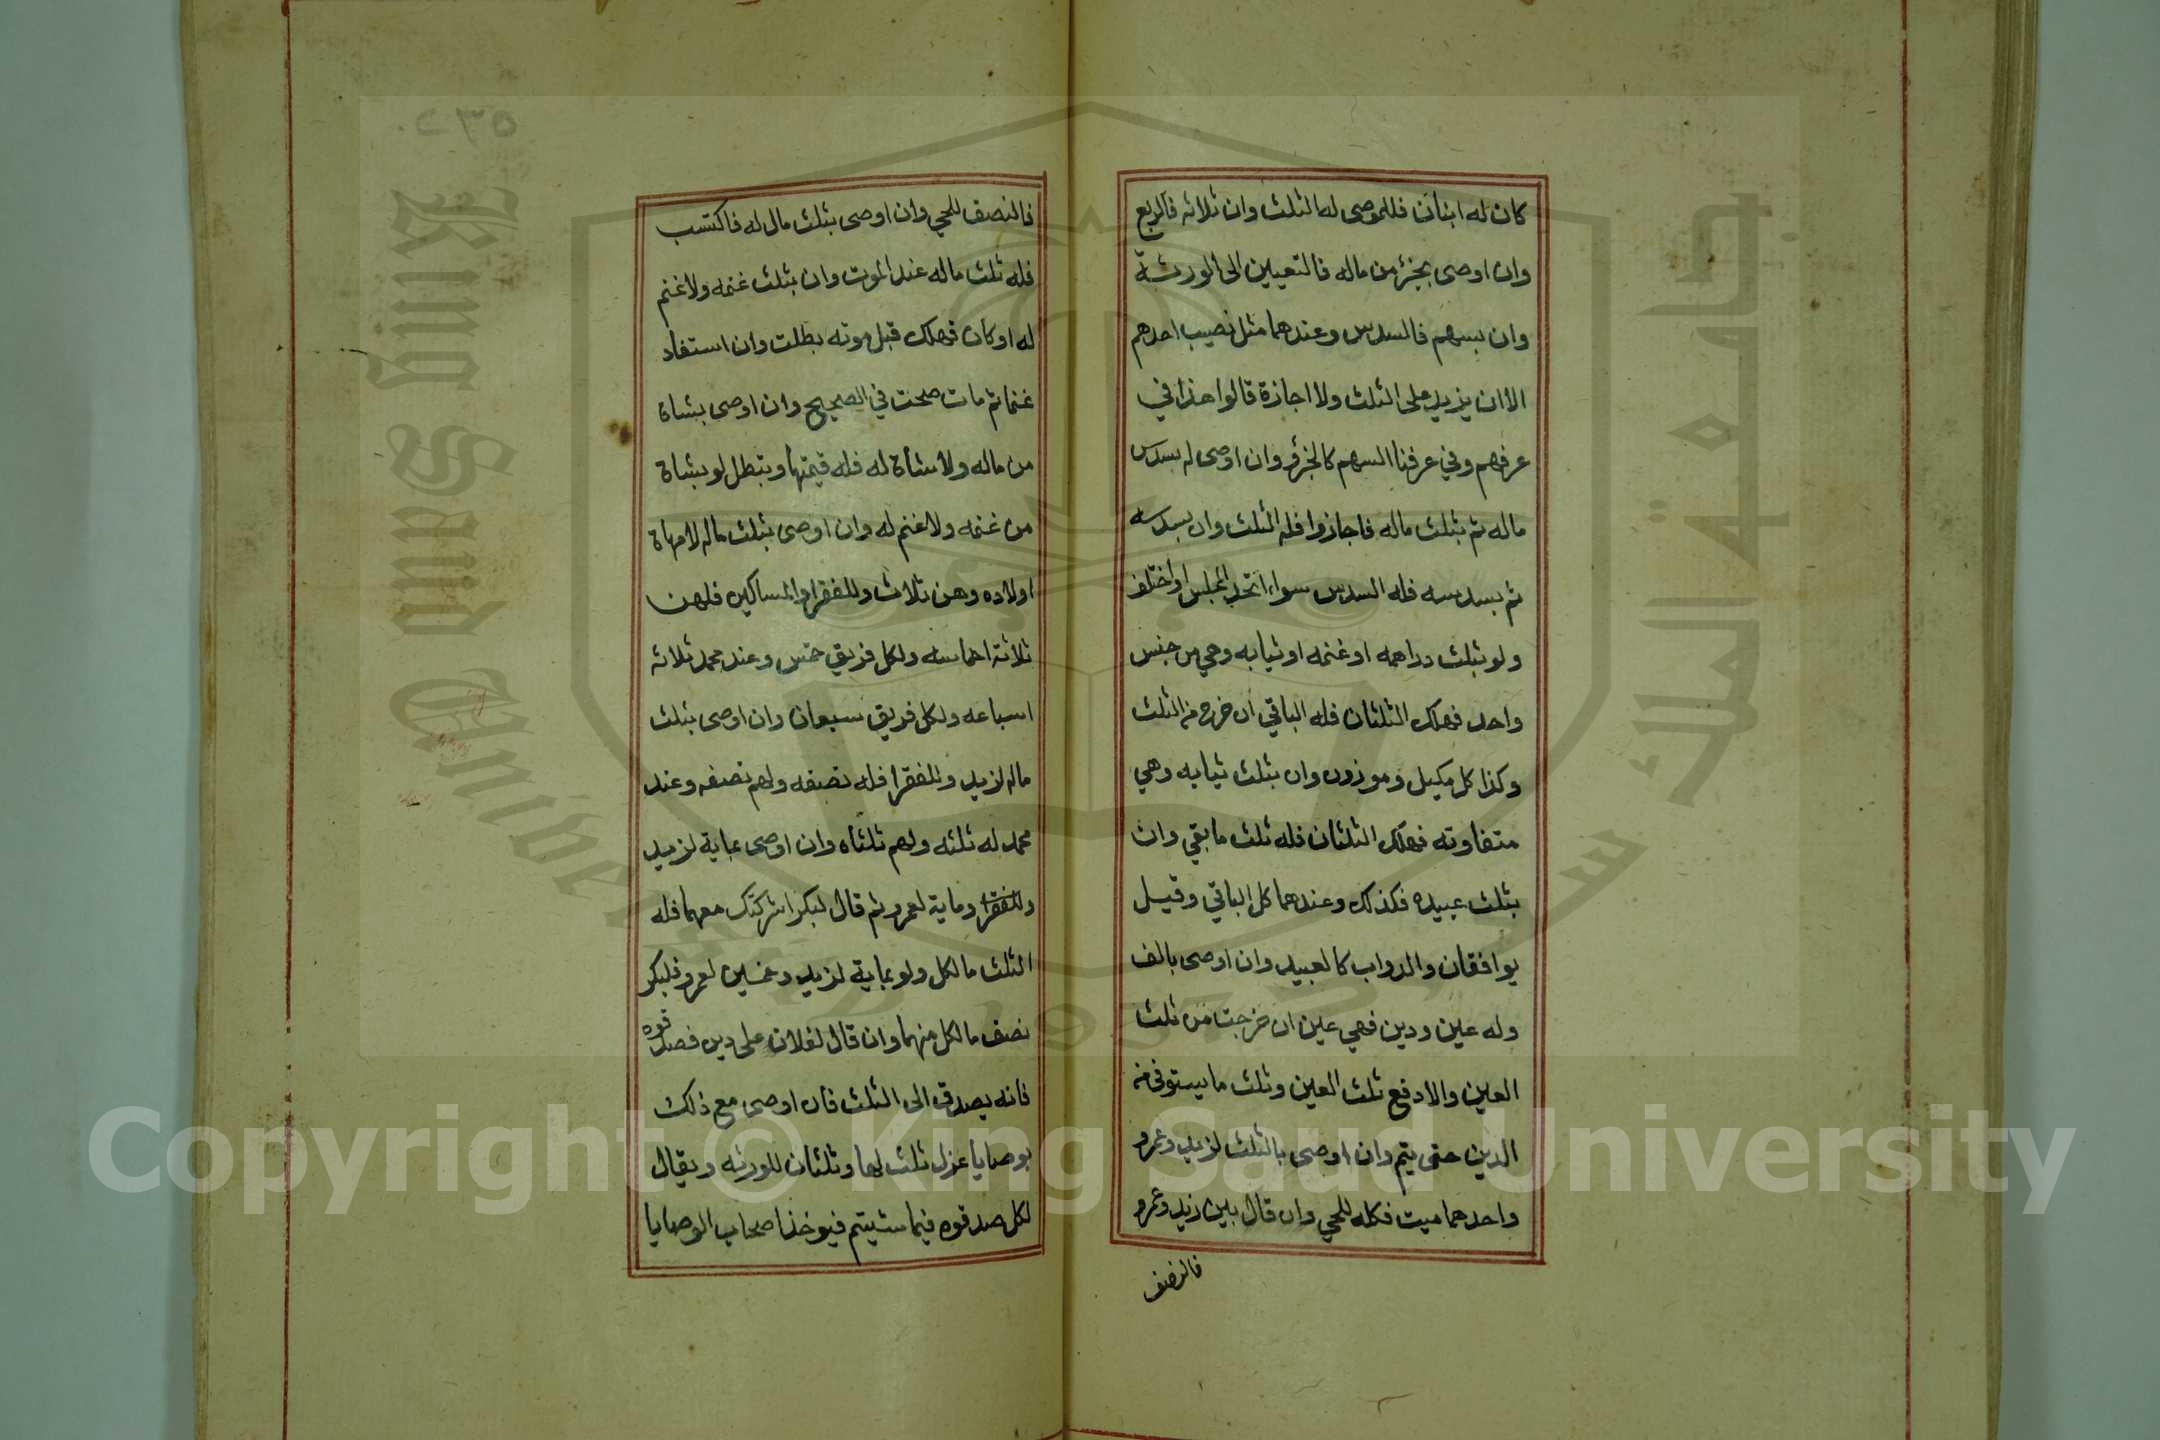 كان له ابنان فللموصى له الثلث وان ثلاثه فالربع
وان اوصى بجزء من ماله فالتعيين الى الورثة
وان بسهم فالسدس وعندهما مثل نصيب احدهم
الا ان يزيد على الثلث ولا اجازة قالوا هذا في
عرفهم وفي عرفنا السهم كالجزء وان اوصى له بسدس
ماله ثم بثلث ماله فاجازوا فله الثلث وان بسدسه
ثم بسدسه فله السدس سواء اتحد المجلس او اختلف
ولو بثلث دراهمه او غنمه او ثيابه وهي من جنس
واحد فهلك الثلثان فله الباقي ان خرج من الثلث
وكذا كل مكيل وموزون وان بثلث ثيابه وهي
متفاوته فهلك الثلثان فله ثلث ما بقي وان
بثلث عبيده فكذلك وعندهما كل الباقي وقيل
يوافقان والدواب كالعبيد وان اوصى بالف
وله عين ودين فهي عين ان خرجت من ثلث
العين والا دفع ثلث العين وثلث ما يستوفى من
الدين حتى يتم وان اوصى بالثلث لزيد وعمرو
واحدهما ميت فكله للحي وان قال بين زيد وعمرو
فالنصف
فالنصف للحي وان اوصى بثلث مال له فاكتسب
فله ثلث ماله عند الموت وان بثلث غنمه ولا غنم
له او كان فهلك قبل موته بطلت وان استفاد
غنما ثم مات صحت في الصحيح وان اوصى بشاة
من ماله ولا شاة له فله قيمتها وتبطل لو بشاة
من غنمه ولا غنم له وان اوصى بثلث ماله لامهاة
اولاده وهن ثلاث وللفقرا والمساكين فلهن
ثلاثة اخماسه ولكل فريق خمس وعند محمد ثلاثه
اسباعه ولكل فريق سبعان وان اوصى بثلث
ماله لزيد وللفقرا فله نصفه ولهم نصفه وعند
محمد له ثلثه ولهم ثلثاه وان اوصى بماية لزيد
وللفقرا وماية لعمرو ثم قال لبكر اشركتك معهما فله
الثلث ما لكل ولو بماية لزيد وخمسين لعمرو فلبكر
نصف ما لكل منهما وان قال لفلان على دين فصدقوه
فانه يصدق الى الثلث فان اوصى مع ذلك
بوصايا عزل ثلث لها وثلثان للورثه ويقال
لكل صدقوه فيما شيتم فيوخذ اصحاب الوصايا
Copyright © King Saud University
King Saud University
جامعة الملك سعود
1957